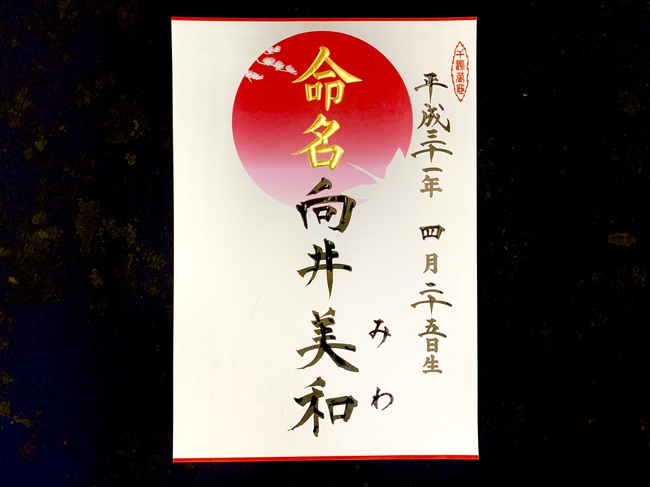 平成三十一年 四月二十五日生
命名 向井美和
みわ